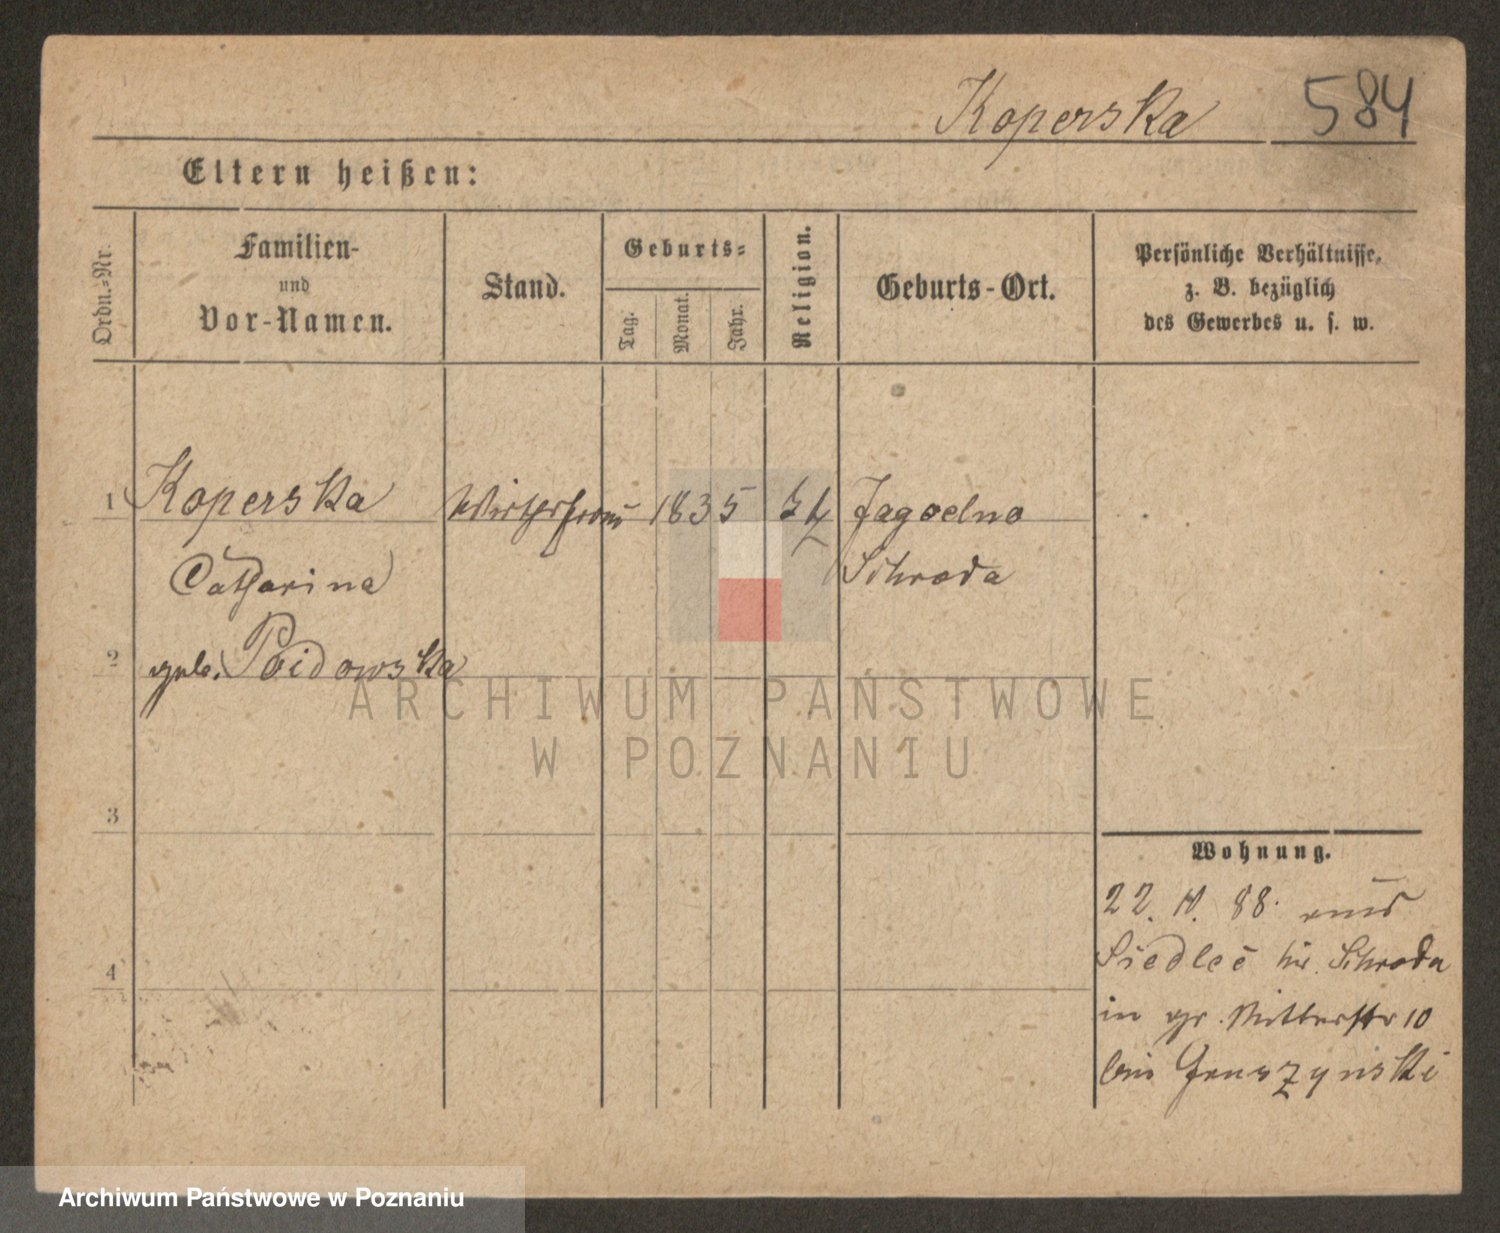 Koperska 584
Eltern heißen:
Ordn.-Nr.
Familien-
und
Vor-Namen.
Stand.
Geburts-
Tag.
Monat.
Jahr.
Religion.
Geburts-Ort.
Persönliche Verhältnisse,
z. B. bezüglich
des Gewerbes u. s. w.
1 Koperska Wirthsfrau 1835 kth Jagodno
Catharina Schroda
2 geb. Poidowska
3
4
Wohnung.
22. 11. 88. aus
Siedlec Kr. Schroda
in gr. Ritterstr 10
bei Gruszynski
ARCHIWUM PAŃSTWOWE
W POZNANIU
Archiwum Państwowe w Poznaniu